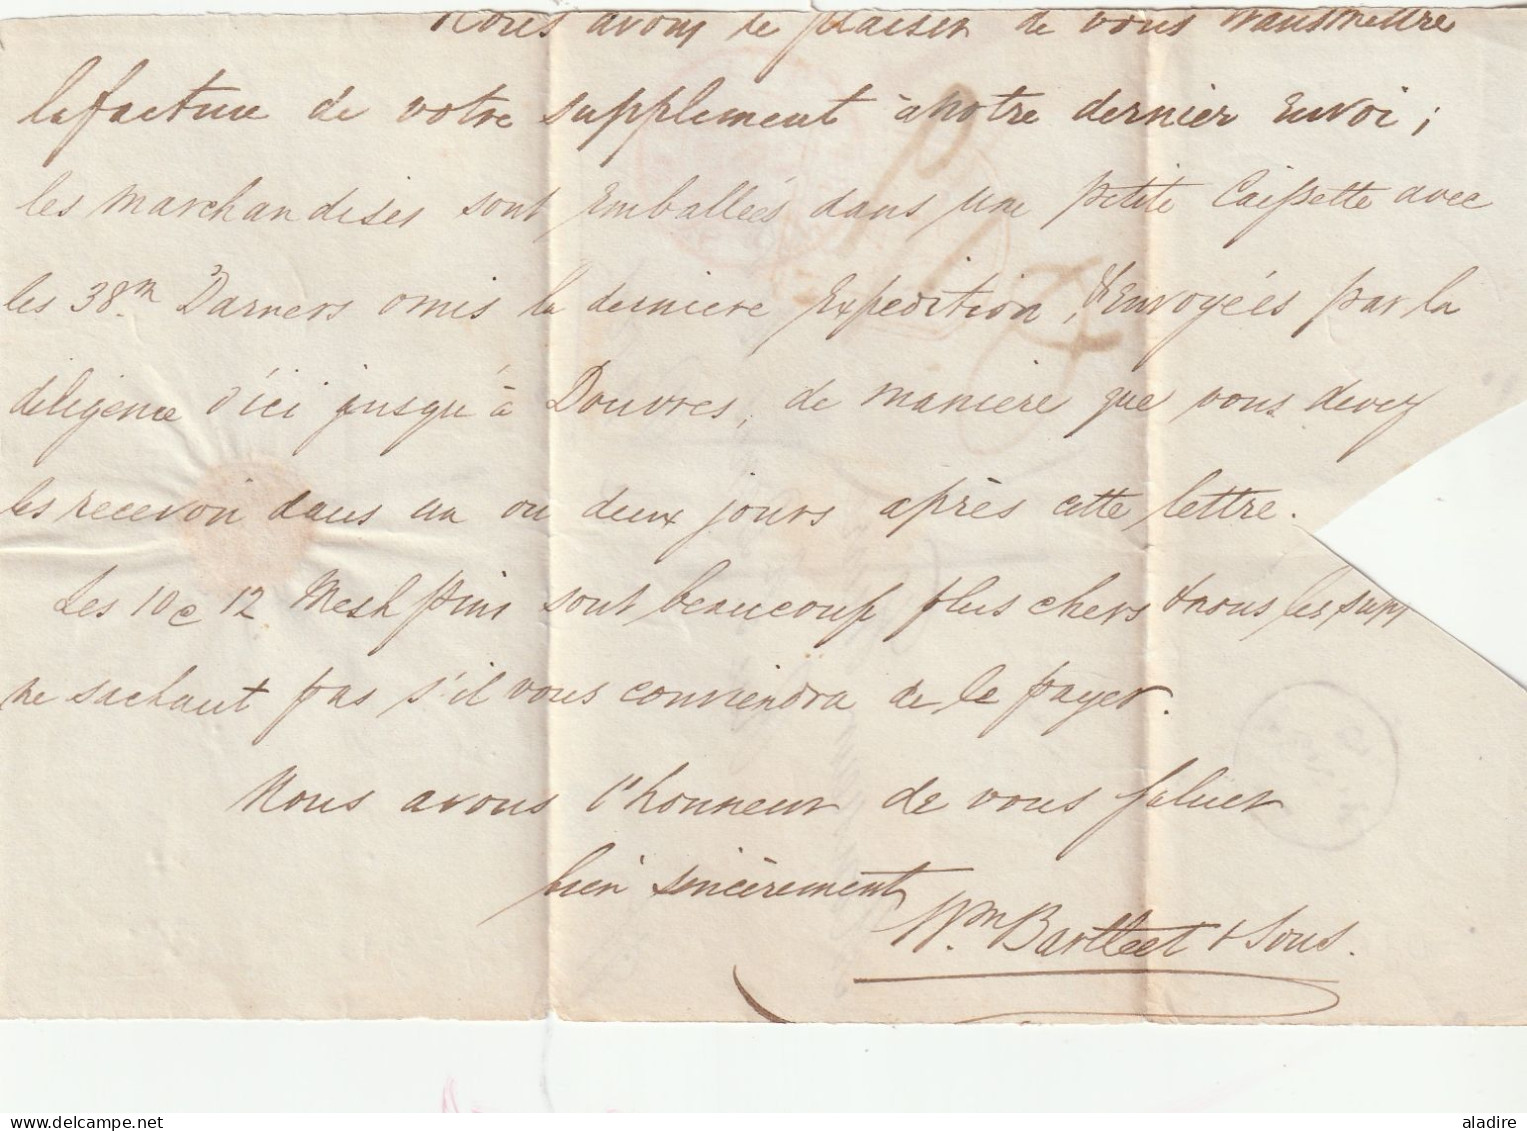 Nous avons le plaisir de vous transmettre
la facture de votre supplement à notre dernier Envoi;
les marchandises sont Emballées dans une petite Caissette avec
les 38 m Darners omis la derniere Expedition, & Envoyées par la
diligence d'ici jusqu'à Douvres, de maniere que vous devez
les recevoir dans un ou deux jours après cette lettre.
Les 10 c 12 Mesh pins sont beaucoup plus chers & nous les
ne sachant pas s'il vous conviendra de le payer.
Nous avons l'honneur de vous saluer
bien sincèrement
Wm Bartleet & Sons.
aladire